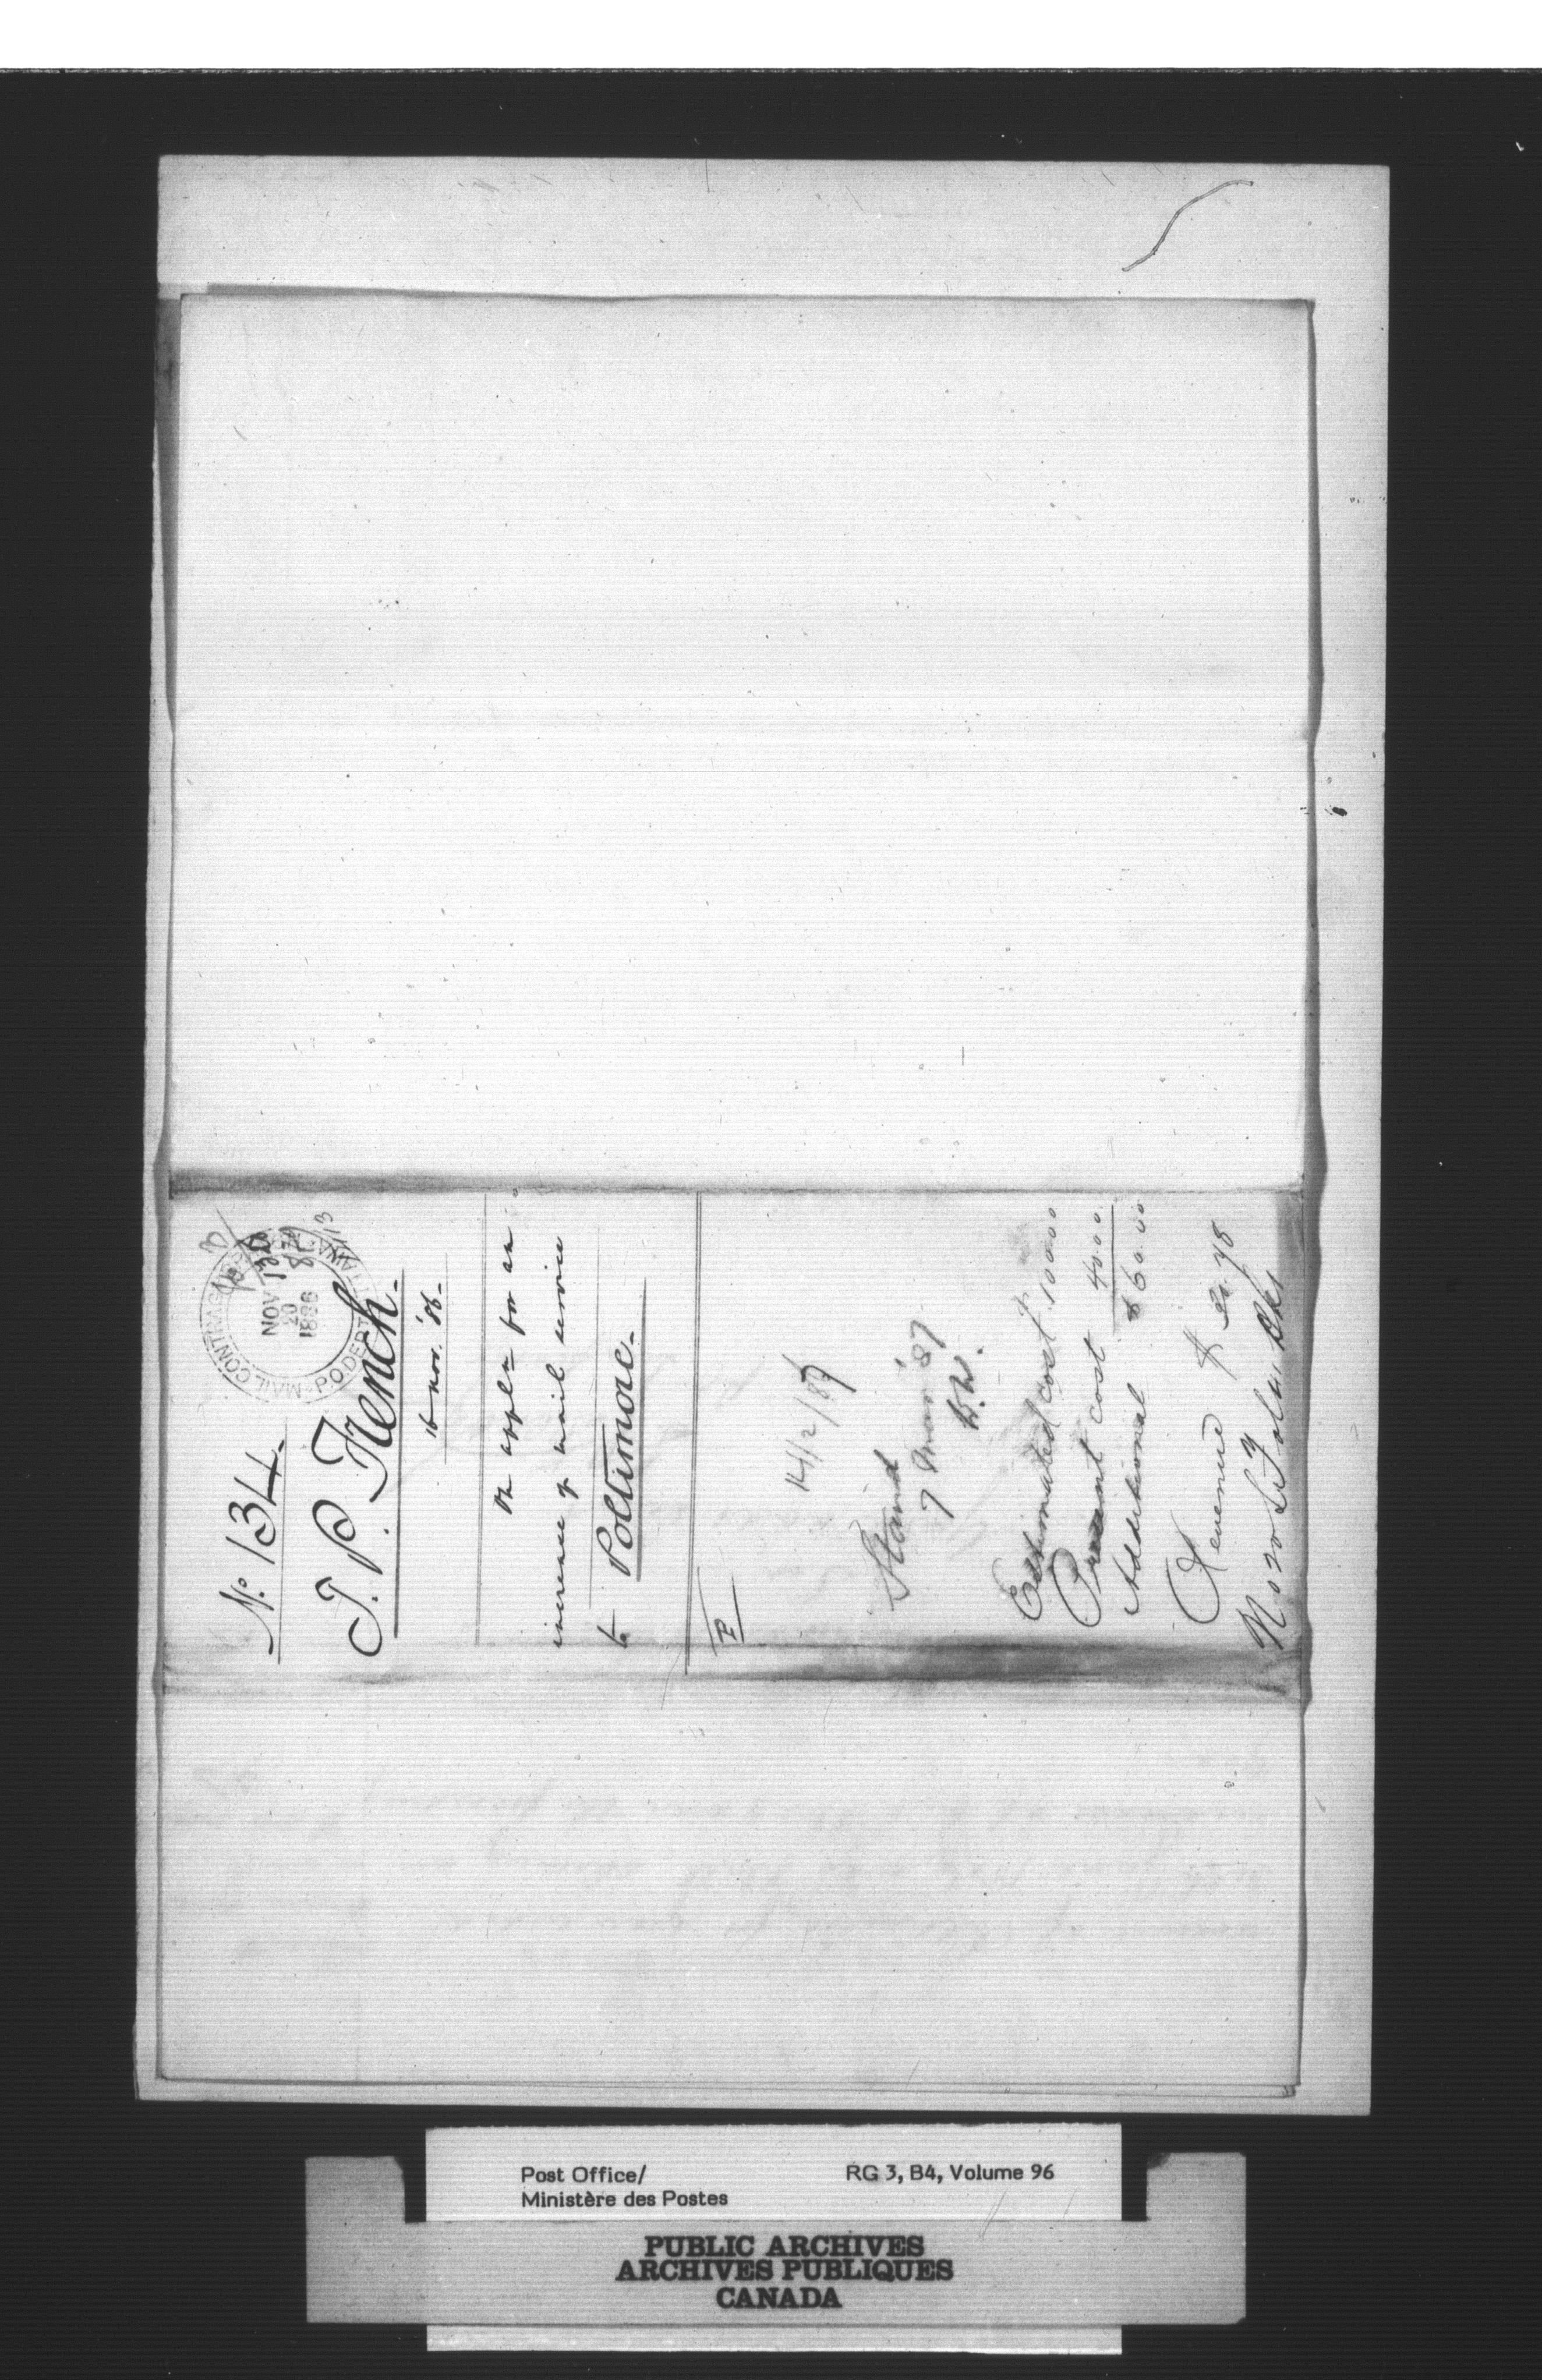 No. 134.
MAIL CONTRACT
NOV
20
1886
P.O. DEPT
T. P. French.
16 nov. '86.
On appln for an
increase of mail service
to Poltimore.
F
14/2/87
Stand
7 Mar '87
W.W.
Estimated cost $100.00
Present cost 40.00
Additional $60.00
Revenue $
Post Office/ RG 3, B4, Volume 96
Ministère des Postes
PUBLIC ARCHIVES
ARCHIVES PUBLIQUES
CANADA